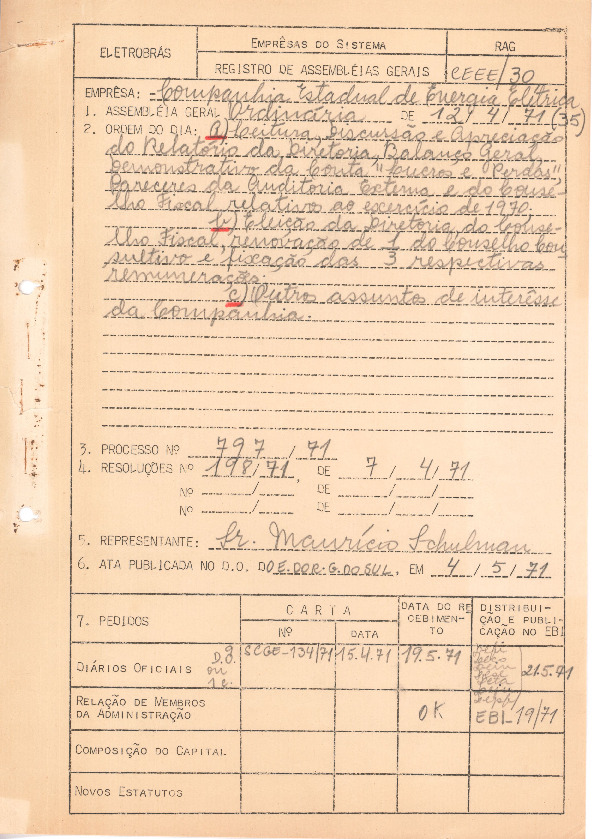 ELETROBRÁS
EMPRÊSAS DO SISTEMA
RAG
REGISTRO DE ASSEMBLÉIAS GERAIS
CEEE/30
EMPRÊSA: - Companhia Estadual de Energia Elétrica
1. ASSEMBLÉIA GERAL Ordinária DE 12/4/71 (35)
2. ORDEM DO DIA: a) Leitura, Discussão e Apreciação
do Relatório da Diretoria, Balanço Geral,
Demonstrativo da Conta "Lucros e Perdas",
Pareceres da Auditoria Externa e do Conse-
lho Fiscal relativos ao exercício de 1970;
b) Eleição da Diretoria, do Conse-
lho Fiscal, renovação de 1 do Conselho Con
sultivo e fixação das 3 respectivas
remunerações.
c) Outros assuntos de interêsse
da Companhia.
3. PROCESSO Nº 797/71
4. RESOLUÇÕES Nº 198/71, DE 7/4/71
Nº / DE / /
Nº / DE / /
5. REPRESENTANTE: Sr. Maurício Schulman
6. ATA PUBLICADA NO D.O. DO E. DO R. G. DO SUL, EM 4/5/71
7. PEDIDOS
CARTA
Nº
DATA
DATA DO RE
CEBIMEN-
TO
DISTRIBUI-
ÇÃO E PUBLI-
CAÇÃO NO EBI
DIÁRIOS OFICIAIS D.O. ou
SCGE-134/71
15.4.71
19.5.71
21.5.71
RELAÇÃO DE MEMBROS
DA ADMINISTRAÇÃO
OK
EBI-19/71
COMPOSIÇÃO DO CAPITAL
NOVOS ESTATUTOS